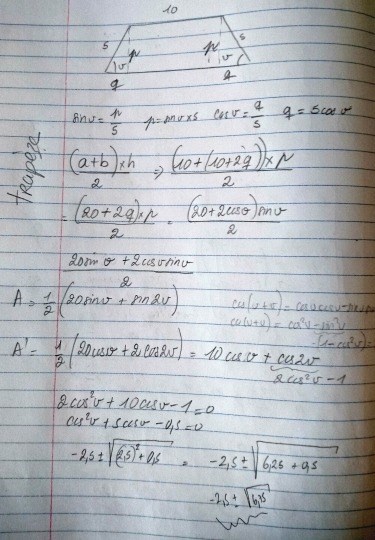 10
5 p p 5
v v
q q
sin v = p/5 p = sin v × 5 cos v = q/5 q = 5 cos v
trapeza
(a+b)×h / 2 ⇒ (10+(10+2q))×p / 2
= (20+2q)×p / 2 = (20+2cosv)sinv / 2
20sin v + 2cosv sinv / 2
A = 1/2 (20sinv + sin2v)
cos(v+v) = cosv cosv - sinv sinv
cos(v+v) = cos²v - sin²v
-(1-cos²v) =
A' = 1/2 (20cosv + 2cos2v) = 10 cosv + cos2v
2cos²v - 1
2cos²v + 10cosv - 1 = 0
cos²v + 5cosv - 0,5 = 0
-2,5 ± √(2,5)² + 0,5 = -2,5 ± √6,25 + 0,5
-2,5 ± √6,75